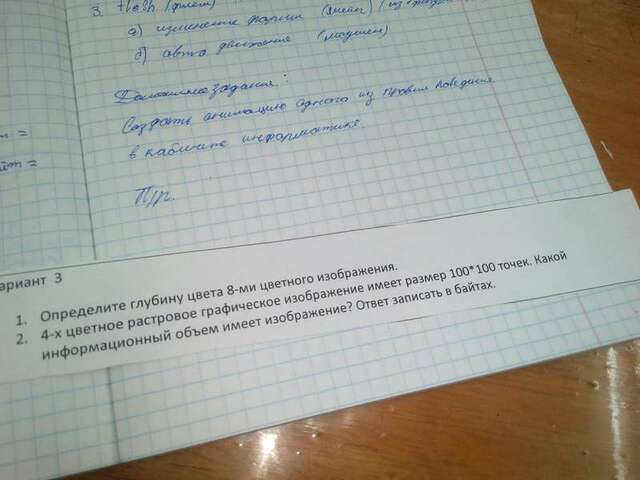 3. flash (флеш)
а) изменение формы
б) авто движение
Домашнее задание.
Создать анимацию одного из правил поведения
в кабинете информатики.
П/р.
ариант 3
1. Определите глубину цвета 8-ми цветного изображения.
2. 4-х цветное растровое графическое изображение имеет размер 100*100 точек. Какой
информационный объем имеет изображение? Ответ записать в байтах.